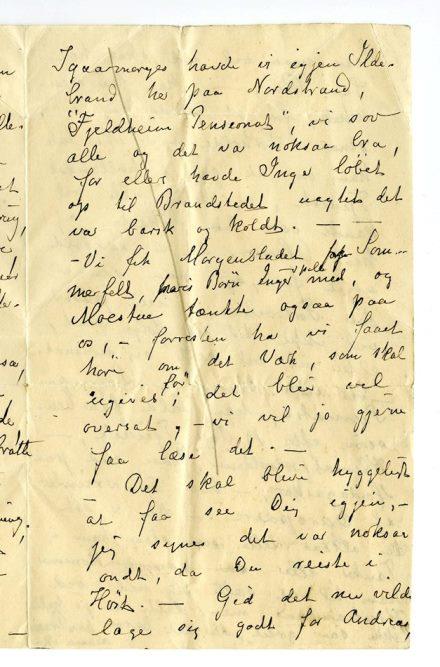 Igaarmorges havde vi igjen Ilde-
brand her paa Nordstrand,
"Fjeldheim Pensionat", vi sov
alle og det va noksaa bra,
for eller havde Inge løbet
op til Brandstedet uagtet det
var barsk og koldt. — —
- Vi fik Morgenbladet fra Som-
merfeldt, hvis Børn Inge spille med, og
Moestue tænkte ogsaa paa
os, – forresten ha vi faaet
høre om det Værk, som skal
udgives, før det blir vel
oversat, – vi vil jo gjerne
faa læse det. —
Det skal blive hyggeligt
at faa see Dig igjen, –
jeg synes det var noksaa
ondt, da Du reiste i
Høst. — Gid det nu vilde
lage sig godt for Andreas,